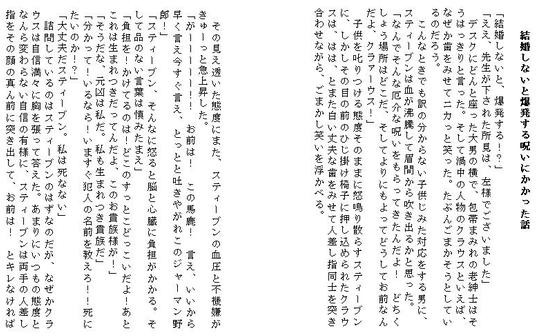 結婚しないと爆発する呪いにかかった話
「結婚しないと、爆発する！？」
「ええ、先生が下された所見は、左様でございました」
デスクにどんと座った大男の横で、包帯まみれの老紳士はそ
うはっきりと言った。そして渦中の人物のクラウスといえば、
なぜか歯をみせてニカっと笑った。たぶんごまかそうとしてい
るのだろう。
こんなときでも訳の分からない子供じみた対応をする男に、
スティーブンは血が沸騰して眉間から吹き出るかと思った。
「なんでそんな厄介な呪いをもらってきたんだよ！　どちく
しょう場所はどこだ、そしてよりにもよってどうしてお前なん
だよ、クラァーウス！」
子供を叱りつける態度そのままに怒鳴り散らすスティーブン
に、しかしその目の前のひじ掛け椅子に押し込められたクラウ
スは、はは、とまた白い丈夫な歯をみせて人差し指同士を突き
合わせながら、ごまかし笑いを浮かべる。
その見え透いた態度にまた、スティーブンの血圧と不機嫌が
きゅーっと急上昇した。
「がーーーーー！　お前は！　この馬鹿！　言え、いいから
早く言え今すぐ言え、とっとと吐きやがれこのジャーマン野
郎！」
「スティーブン、そんなに怒ると脳と心臓に負担がかかる。そ
して品のない言葉は慎みたまえ」
「負担をーかけてるのはーどこのすっとこどっこいだよ！あと
これは生まれつきだってんだよ、このお貴族様が！」
「そうだな、元凶は私だ。私も生まれつき貴族だ」
「分かって！いるなら！いますぐ犯人の名前を教えろ！！死に
たいのか！？」
「大丈夫だスティーブン。私は死なない」
詰問しているのはスティーブンのはずなのだが、なぜかクラ
ウスは自信満々に胸を張って答えた。あまりにいつもの態度と
なんら変わらない自信の有様に、スティーブンは両手の人差し
指をその顔の真ん前に突き出して、お前は！　とキレなければ